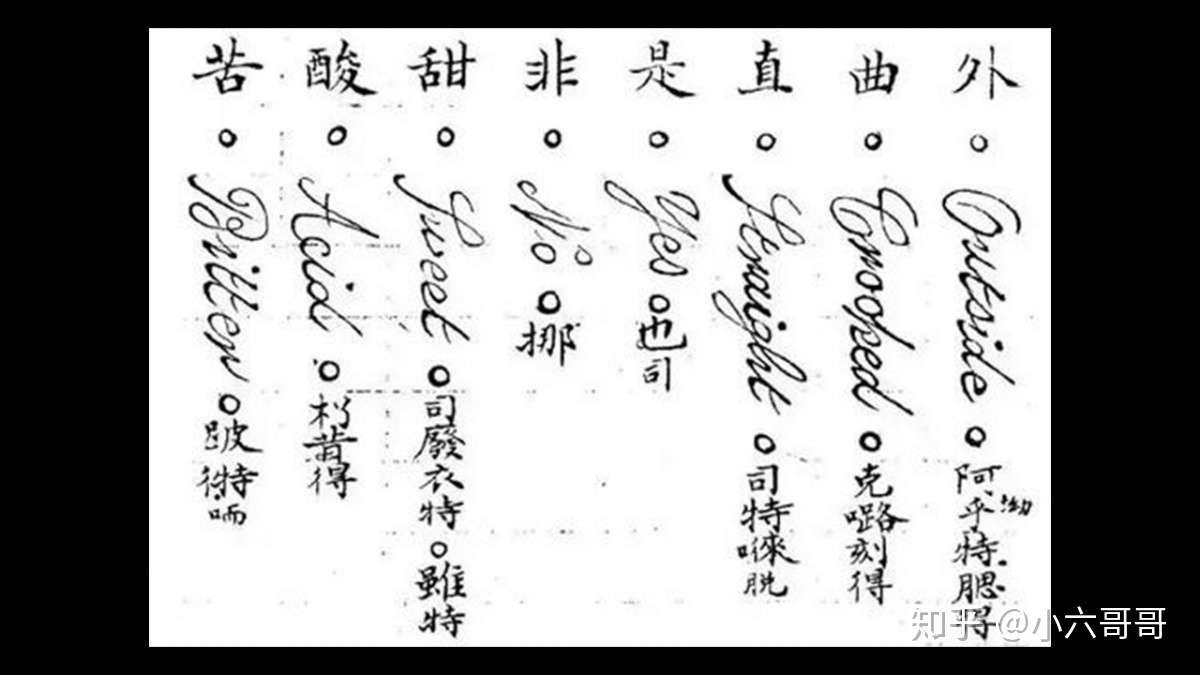 外。Outside。阿乎特腮得
坳
曲。Crooked。克嚕刻得
直。Straight。司特唻脱
是。Yes。也司
非。No。挪
甜。Sweet。司廢衣特。雖特
酸。Acid。得
苦。Bitter。跛特
知乎 @小六哥哥